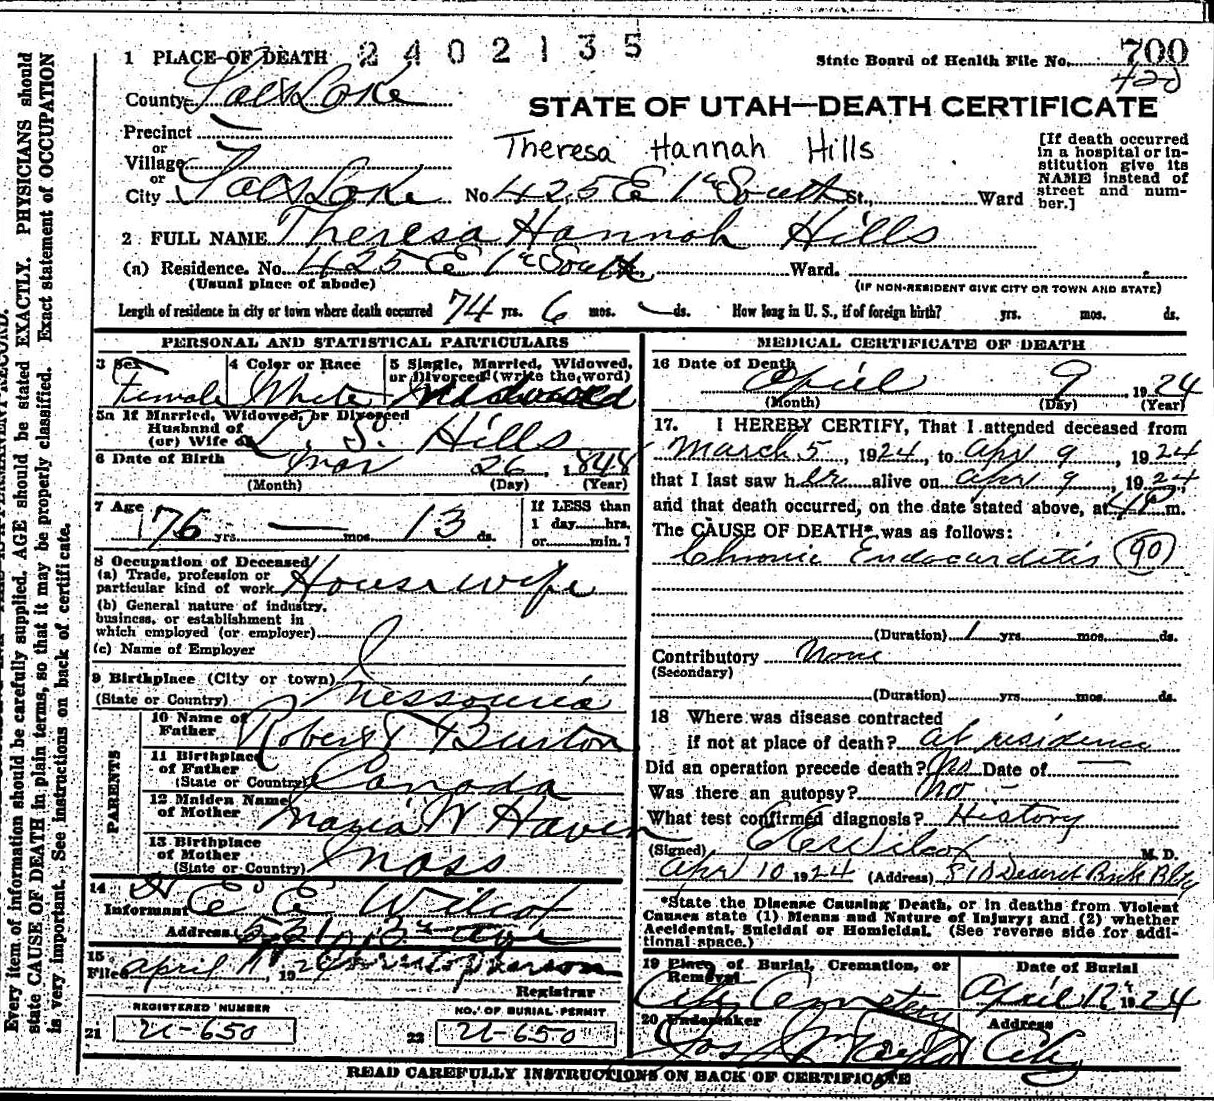 2402135
1 PLACE OF DEATH
State Board of Health File No. 700
420
County Salt Lake
STATE OF UTAH—DEATH CERTIFICATE
Precinct
or
Village
or
City Salt Lake No. 425 E 1st South St., Ward
Theresa Hannah Hills
[If death occurred
in a hospital or in-
stitution give its
NAME instead of
street and num-
ber.]
2 FULL NAME Theresa Hannah Hills
(a) Residence. No. 425 E 1st South Ward.
(Usual place of abode)
(IF NON-RESIDENT GIVE CITY OR TOWN AND STATE)
Length of residence in city or town where death occurred 74 yrs. 6 mos. — ds. How long in U. S., if of foreign birth? yrs. mos. ds.
PERSONAL AND STATISTICAL PARTICULARS
3 Sex Female
4 Color or Race White
5 Single, Married, Widowed,
or Divorced (write the word)
5a If Married, Widowed, or Divorced
Husband of
(or) Wife of L. S. Hills
6 Date of Birth Mar 26, 1848
(Month) (Day) (Year)
7 Age 76 yrs. — mos. 13 ds.
If LESS than
1 day hrs.
or min.?
8 Occupation of Deceased
(a) Trade, profession or
particular kind of work Housewife
(b) General nature of industry,
business, or establishment in
which employed (or employer)
(c) Name of Employer
9 Birthplace (City or town)
(State or Country) Messouria
PARENTS
10 Name of
Father Robert T Burton
11 Birthplace
of Father
(State or Country) Canada
12 Maiden Name
of Mother Maria W Haven
13 Birthplace
of Mother
(State or Country) Mass
14
Informant Dr E E Wilcox
Address
15
Filed April 11, 1924
Registrar
REGISTERED NUMBER
21 U-650
NO. OF BURIAL PERMIT
22 U-650
MEDICAL CERTIFICATE OF DEATH
16 Date of Death April 9 1924
(Month) (Day) (Year)
17. I HEREBY CERTIFY, That I attended deceased from
March 5, 1924, to Apr 9, 1924
that I last saw her alive on Apr 9, 1924,
and that death occurred, on the date stated above, at 4 P m.
The CAUSE OF DEATH* was as follows:
Chronic Endocarditis (90)
(Duration) 1 yrs. mos. ds.
Contributory None
(Secondary)
(Duration) yrs. mos. ds.
18 Where was disease contracted
if not at place of death? at residence
Did an operation precede death? Date of —
Was there an autopsy? No —
What test confirmed diagnosis? History
(Signed) E E Wilcox M. D.
Apr 10 1924 (Address) 810 Deseret Bank Bldg
*State the Disease Causing Death, or in deaths from Violent
Causes state (1) Means and Nature of Injury; and (2) whether
Accidental, Suicidal or Homicidal. (See reverse side for addi-
tional space.)
19 Place of Burial, Cremation, or
Removal City Cemetery
Date of Burial
April 12 1924
20 Undertaker Jos Wm Taylor
Address City
READ CAREFULLY INSTRUCTIONS ON BACK OF CERTIFICATE
Every item of information should be carefully supplied. AGE should be stated EXACTLY. PHYSICIANS should
state CAUSE OF DEATH in plain terms, so that it may be properly classified. Exact statement of OCCUPATION
is very important. See instructions on back of certificate.